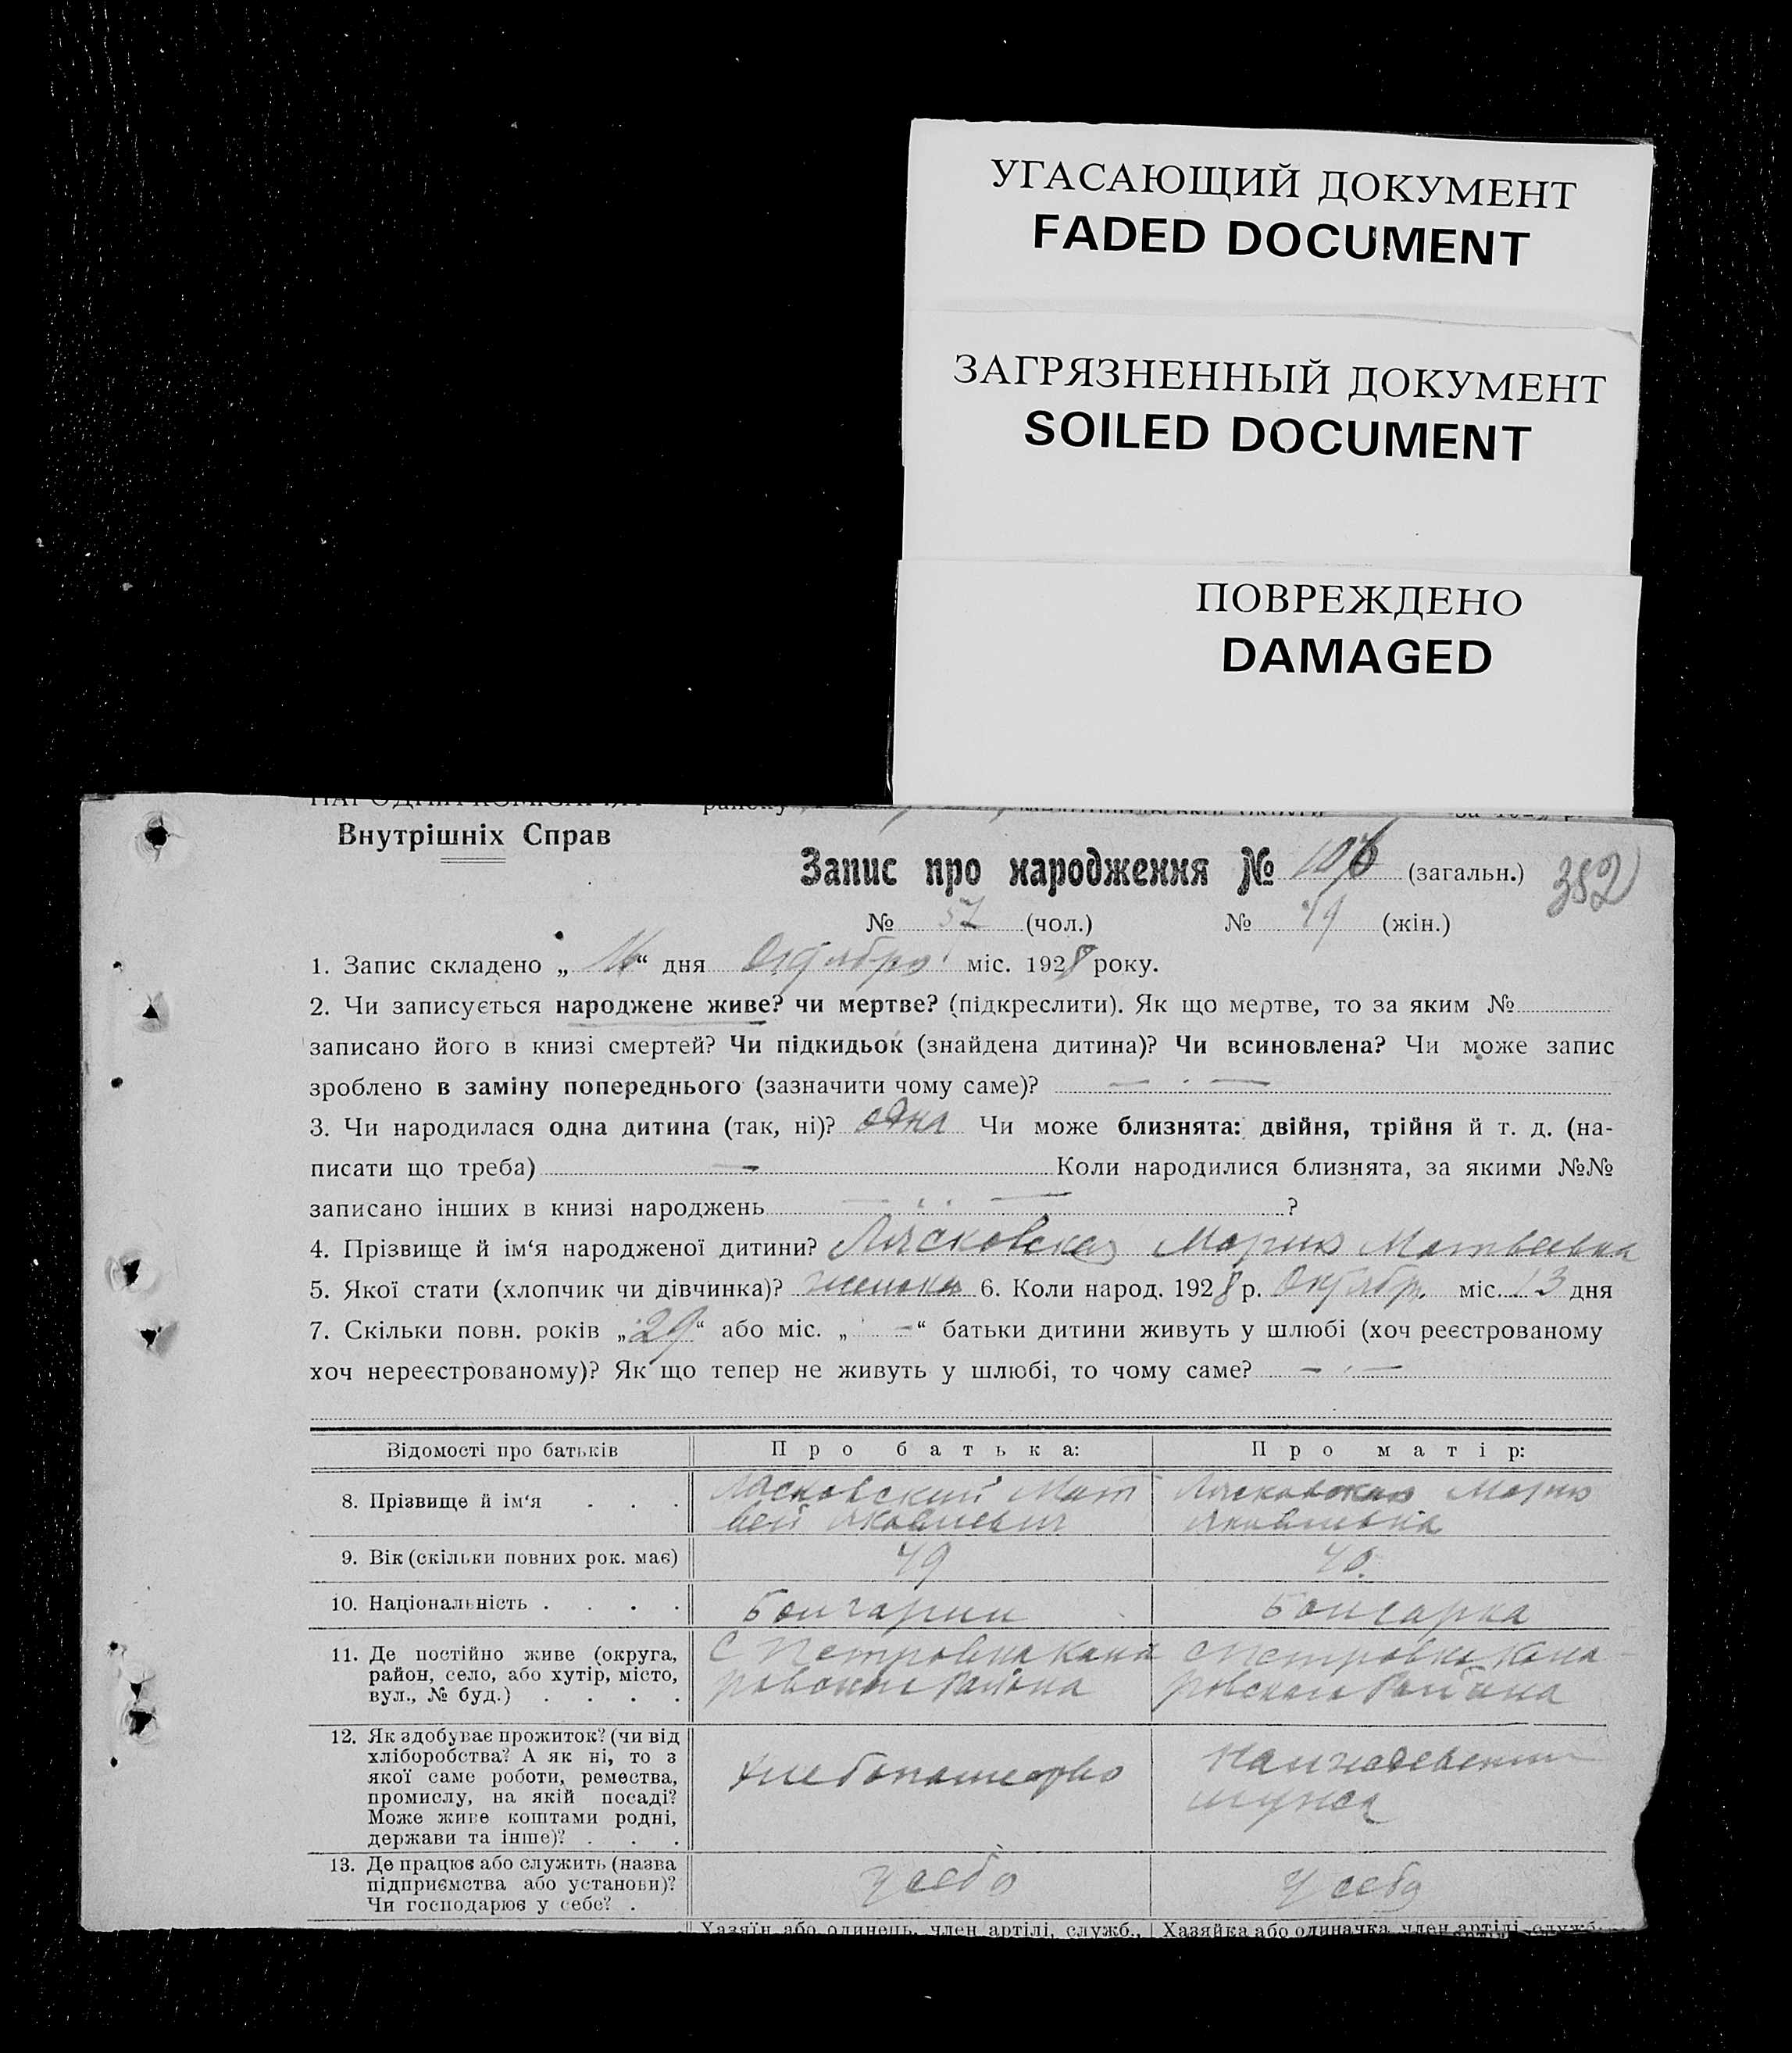 УГАСАЮЩИЙ ДОКУМЕНТ
FADED DOCUMENT
ЗАГРЯЗНЕННЫЙ ДОКУМЕНТ
SOILED DOCUMENT
ПОВРЕЖДЕНО
DAMAGED
Внутрішніх Справ
Запис про народження № 106 (загальн.) 352
№ 57 (чол.) № 49 (жін.)
1. Запис складено „ 16 “ дня Октября міс. 1928 року.
2. Чи записується народжене живе? чи мертве? (підкреслити). Як що мертве, то за яким №
записано його в книзі смертей? Чи підкидьок (знайдена дитина)? Чи всиновлена? Чи може запис
зроблено в заміну попереднього (зазначити чому саме)? —
3. Чи народилася одна дитина (так, ні)? одна Чи може близнята: двійня, трійня й т. д. (на-
писати що треба) — Коли народилися близнята, за якими №№
записано інших в книзі народжень — ?
4. Прізвище й ім‘я народженої дитини? Лясковская Мария Матвеевна
5. Якої стати (хлопчик чи дівчинка)? женска 6. Коли народ. 1928 р. Октябр. міс. 13 дня
7. Скільки повн. років „29“ або міс. „ - “ батьки дитини живуть у шлюбі (хоч реєстрованому
хоч нереєстрованому)? Як що тепер не живуть у шлюбі, то чому саме? —
Відомості про батьків Про батька: Про матір:
8. Прізвище й ім‘я . . . Лясковский Мат Лясковская Мария
вей Яковлевич Яковлевна
9. Вік (скільки повних рок. має) 49
10. Національність . . . . Болгарин Болгарка
11. Де постійно живе (округа, С Петровка Кома с Петровка Кома-
район, село, або хутір, місто, ровского Района ровского Района
вул., № буд.) . . . .
12. Як здобуває прожиток? (чи від
хліборобства? А як ні, то з
якої саме роботи, ремества, Хлебопашество
промислу, на якій посаді? мужа
Може живе коштами родні,
держави та інше)? . . .
13. Де працює або служить (назва у себя у себя
підприємства або установи)?
Чи господарює у себе? .
Хазяїн або одинець, член артілі, служб., Хазяйка або одиначка, член артілі, служб.